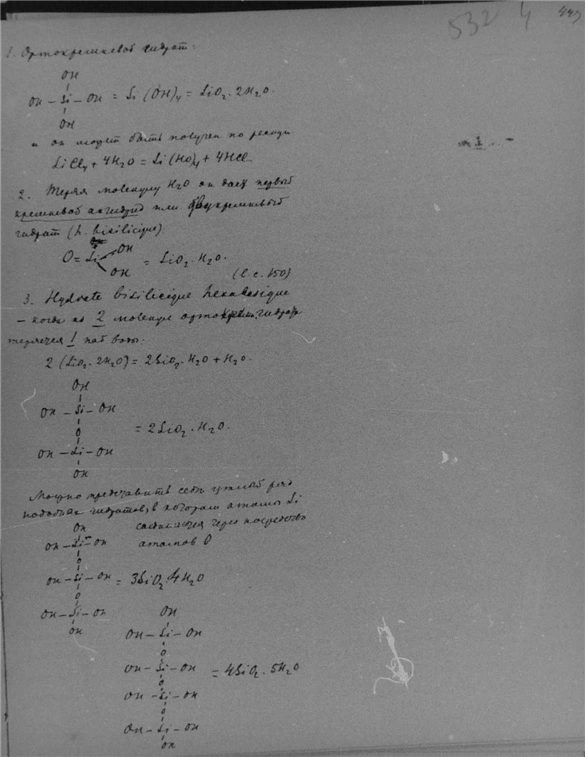 532 4
1. Ортокремневой гидрат:
OH
OH – Si – OH = Si(OH)4 = SiO2·2H2O.
OH
и он может быть получен по реакции
SiCl4 + 4H2O = Si(HO)4 + 4HCl
2. Теряя молекулу H2O он дает первый
кремневой ангидрид или
гидрат (h. bisilicique)
OH
O = Si = SiO2·H2O.
OH
(l. c. 150)
3. Hydrate bisilicique hexabasique
– когда из 2 молекул орто гидрата
теряется 1 воды.
2 (SiO2·2H2O) = 2SiO2·H2O + H2O.
OH
OH – Si – OH
O
= 2SiO2·H2O.
OH – Si – OH
OH
Можно представить себе целый ряд
подобных гидратов, в которых атомы Si
OH
соединяются через посредство
OH – Si – OH
атомов O
O
OH – Si – OH = 3SiO2·4H2O
O
OH – Si – OH
OH
OH
OH – Si – OH
O
OH – Si – OH = 4SiO2·5H2O
O
OH – Si – OH
O
OH – Si – OH
OH